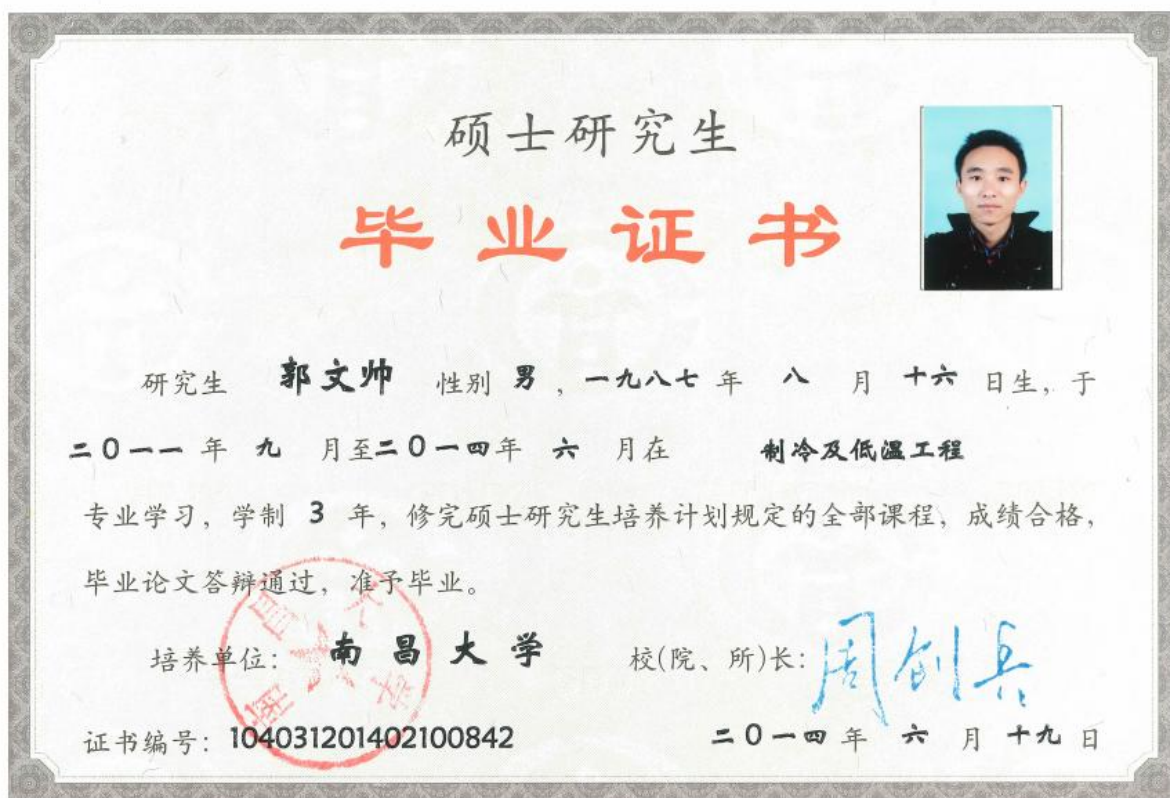 硕士研究生
毕业证书
研究生 郭文帅 性别 男，一九八七 年 八 月 十六 日生，于
二〇一一 年 九 月至二〇一四年 六 月在 制冷及低温工程
专业学习，学制 3 年，修完硕士研究生培养计划规定的全部课程，成绩合格，
毕业论文答辩通过，准予毕业。
培养单位：南昌大学 校(院、所)长：周创兵
证书编号：104031201402100842 二〇一四 年 六 月 十九 日
南昌大学